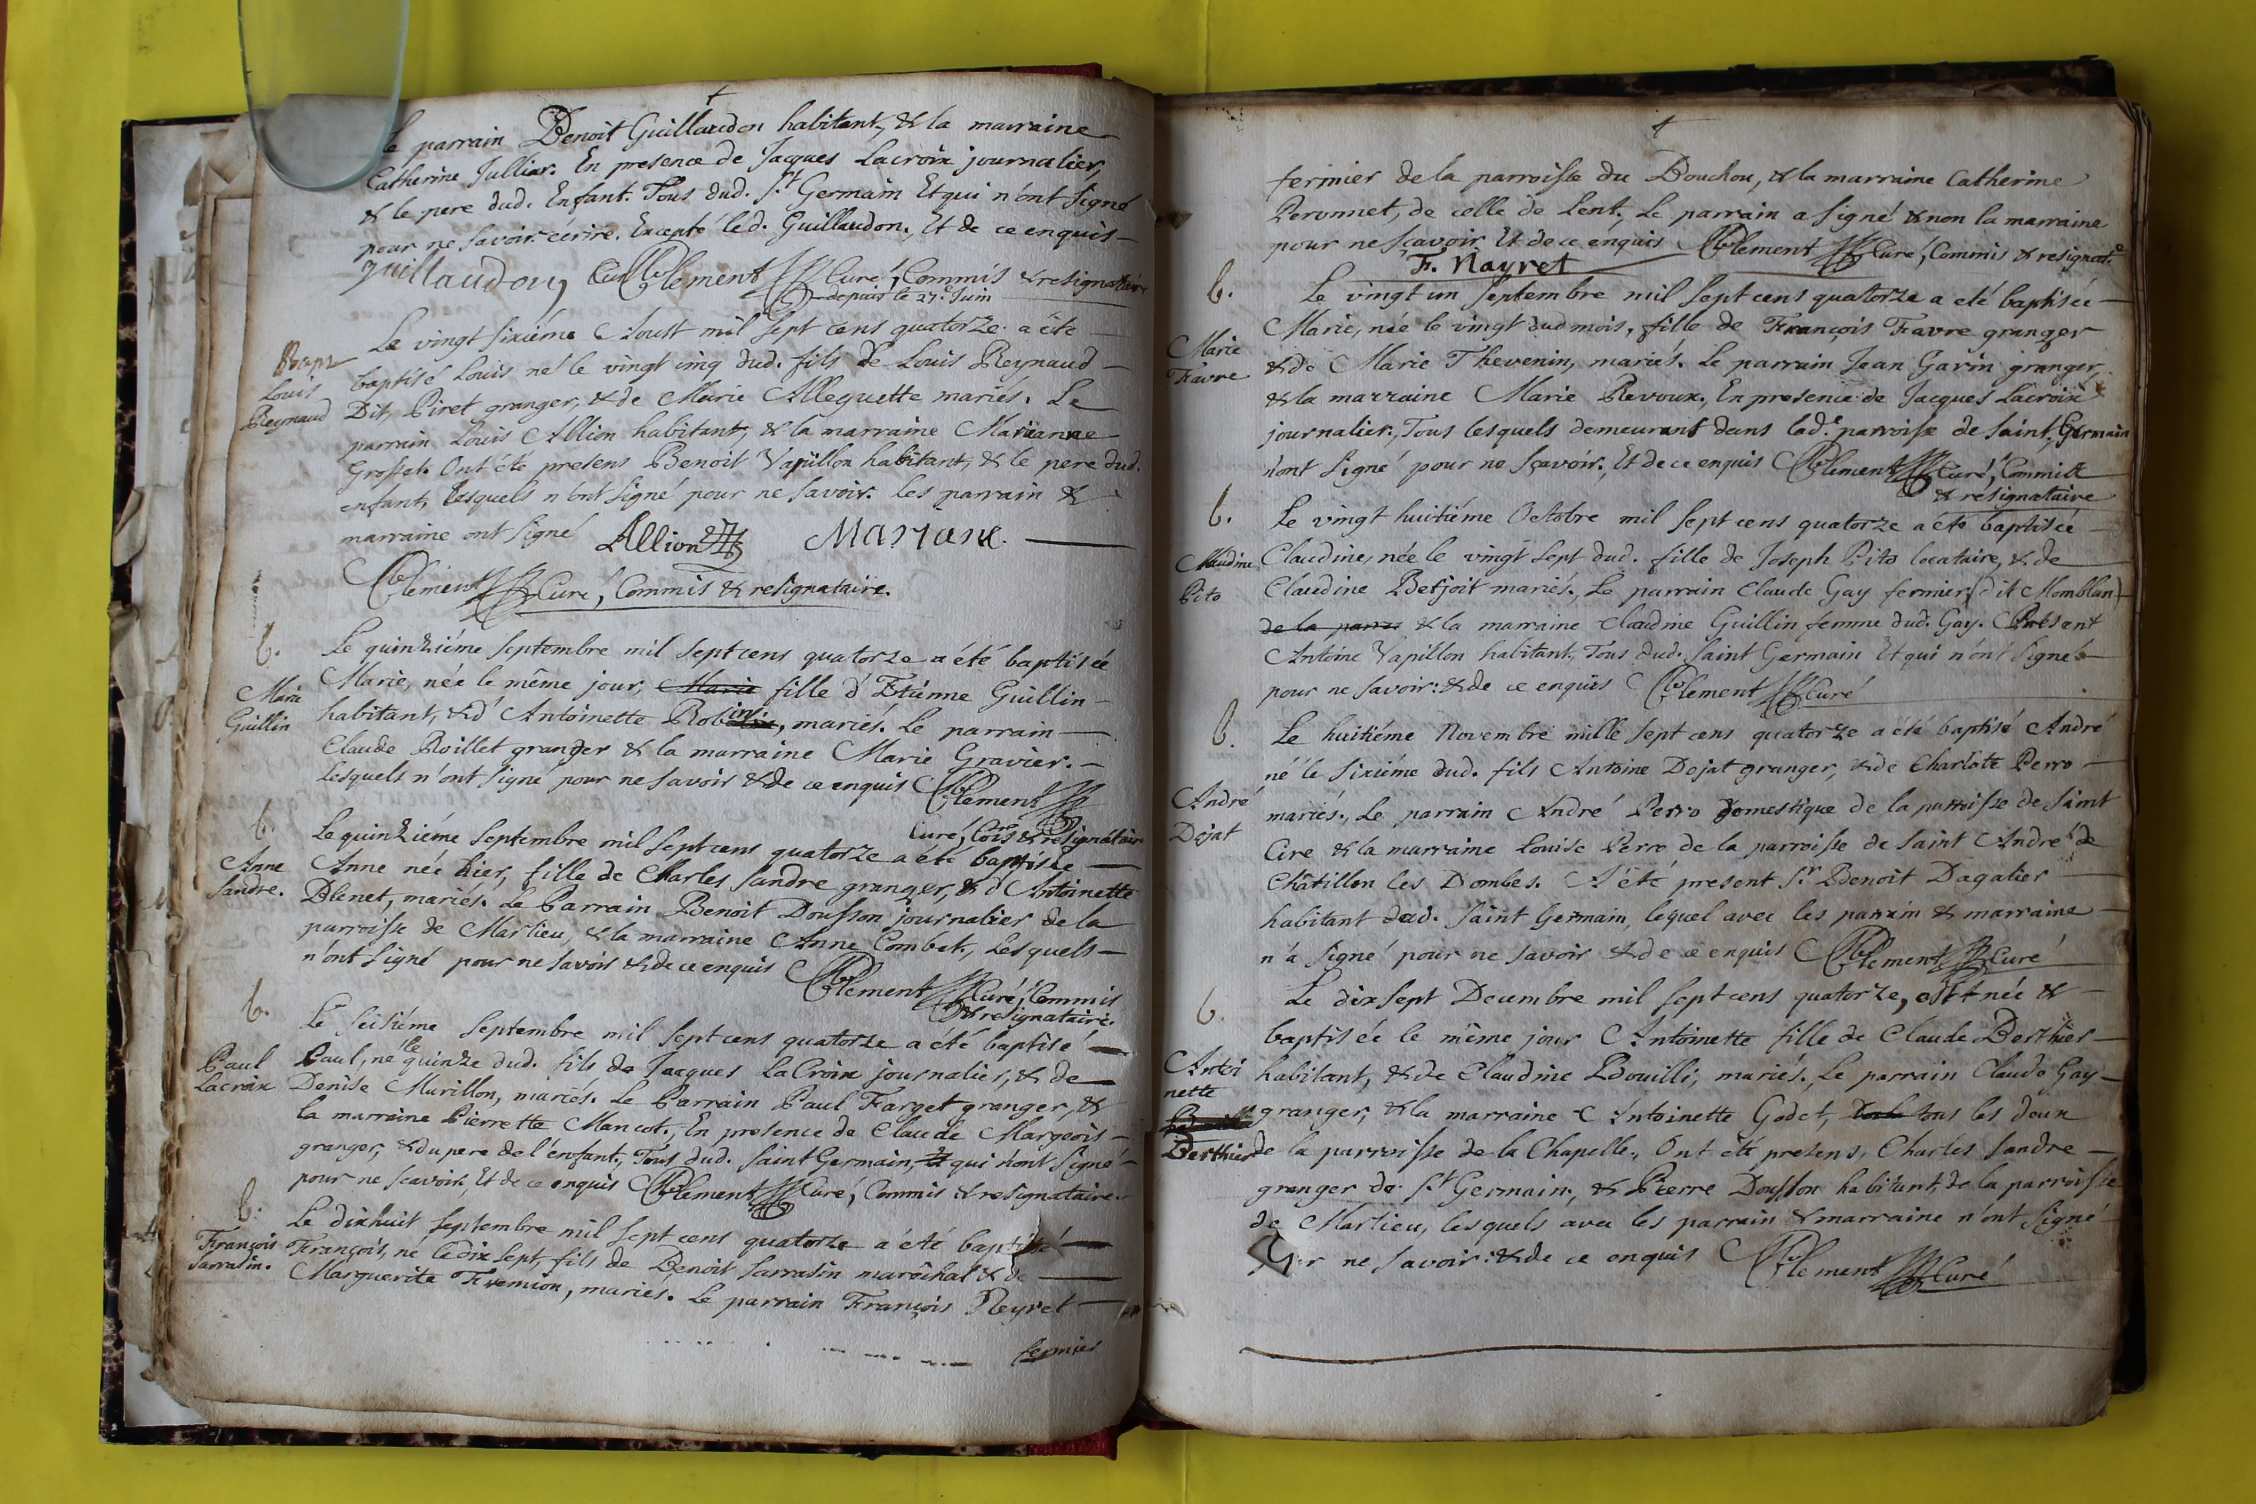 Le parrain Benoit Guillaudon habitant, & la marraine
Catherine Julliar. En presence de Jacques Lacroix journalier,
& le pere dud. Enfant. Tous dud. St Germain Et qui n'ont signé
pour ne savoir écrire. Excepté led. Guillaudon, Et de ce enquis
guillaudon, Clement Curé, Commis & resignataire
depuis le 27e Juin
Bapt
Louis
Reynaud
Le vingt sixiéme Aoust mil sept cens quatorze a été
baptisé Louis né le vingt cinq dud. fils de Louis Reynaud
Dit, Piret granger, & de Marie Alleguette mariés. Le
parrain Louis Allion habitant, & la marraine Marianne
Grosset. Ont été presens Benoit Vapillon habitant, & le pere dud.
enfant, lesquels n'ont signé pour ne savoir. les parrain &
marraine ont signé Allion Mariane.
Clement Curé, Commis & resignataire.
b.
Marie
Guillin
Le quinziéme septembre mil sept cens quatorze a été baptisée
Marie, née le même jour, Marie fille d'Etienne Guillin
habitant, & d'Antoinette Robin, mariés. Le parrain
Claude Roillet granger & la marraine Marie Gravier.
Lesquels n'ont signé pour ne savoir & de ce enquis Clement
Curé, Cois & resignataire
b.
Anne
Sandre.
Le quinziéme septembre mil sept cens quatorze a été baptisée
Anne née hier, fille de Charles Sandre granger, & d'Antoinette
Blenet, mariés. Le Parrain Benoit Dousson journalier de la
parroisse de Marlieu, & la marraine Anne Combet, Lesquels
n'ont signé pour ne savoir & de ce enquis Clement Curé, Commis
& resignataire.
b.
Paul
Lacroix
Le seiziéme septembre mil sept cens quatorze a été baptisé
Paul, né le quinze dud. fils de Jacques LaCroix journalier, & de
Denise Murillon, mariés. Le Parrain Paul Farget granger, &
la marraine Pierrette Mancot, En presence de Claude Margeois
granger, & du pere de l'enfant, Tous dud. Saint Germain, Et qui n'ont signé
pour ne scavoir, Et de ce enquis Clement Curé, Commis & resignataire.
b.
François
Sarrasin.
Le dixhuit septembre mil sept cens quatorze a été baptisé
François, né le dix sept, fils de Benoit Sarrasin maréchal & de
Marguerite Fremion, mariés. Le parrain François Neyret
fermier
fermier de la parroisse du Bouchou, & la marraine Catherine
Peronnet, de celle de Lent, Le parrain a signé & non la marraine
pour ne sçavoir Et de ce enquis Clement Curé, Commis & resignat.e
F. Nayret
b.
Marie
Favre
Le vingt un septembre mil sept cens quatorze a eté baptisée
Marie, née le vingt dud mois, fille de François Favre granger
& de Marie Thevenin, mariés. Le parrain Jean Garin granger,
& la marraine Marie Revoux, En presence de Jacques Lacroix
journalier, Tous lesquels demeurant dans lad.e parroisse de Saint Germain
n'ont signé pour ne sçavoir, Et de ce enquis Clement Curé, Commis
& resignataire
b.
Claudine
Pito
Le vingt huitiéme Octobre mil sept cens quatorze a été baptisée
Claudine, née le vingt sept dud. fille de Joseph Pito locataire, & de
Claudine Betjoit mariés, Le parrain Claude Gay fermier, dit Momblan
de la parro & la marraine Claudine Guillin femme dud. Gay. Présent
Antoine Vapillon habitant, Tous dud. Saint Germain Et qui n'ont signé
pour ne savoir: & de ce enquis Clement Curé
b.
André
Dejat
Le huitiéme Novembre mille sept cens quatorze a été baptisé André
né le sixiéme dud. fils Antoine Dejat granger, & de Charlote Perro
mariés, Le parrain André Perro Domestique de la parroisse de Saint
Cire & la marraine Louise Perro de la parroisse de Saint André de
Châtillon les Dombes. A été present Sr Benoit Dagalier
habitant dud. Saint Germain, lequel avec les parrain & marraine
n'a signé pour ne savoir & de ce enquis Clement Curé
b.
Antoi
nette
Berthier
Le dix sept Decembre mil sept cens quatorze, est née &
baptisée le même jour Antoinette fille de Claude Berthier
habitant, & de Claudine Bouilli, mariés. Le parrain Claude Gay
granger, & la marraine Antoinette Godet, tous les deux
de la parroisse de la Chapelle, Ont été presens, Charles Sandre
granger de St Germain, & Pierre Dousson habitant de la parroisse
de Marlieu, lesquels avec les parrain & marraine n'ont signé
pour ne savoir: & de ce enquis Clement Curé